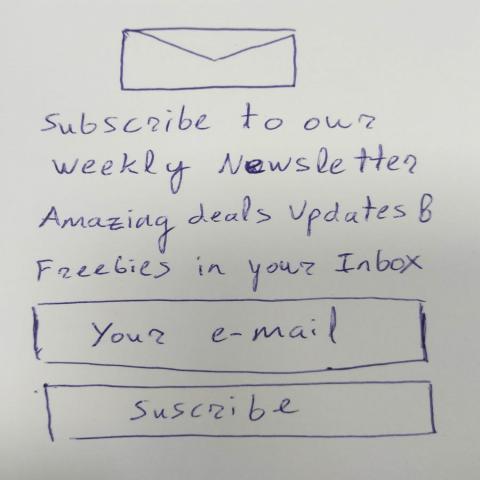 Subscribe to our
weekly Newsletter
Amazing deals Updates &
Freebies in your Inbox
Your e-mail
suscribe